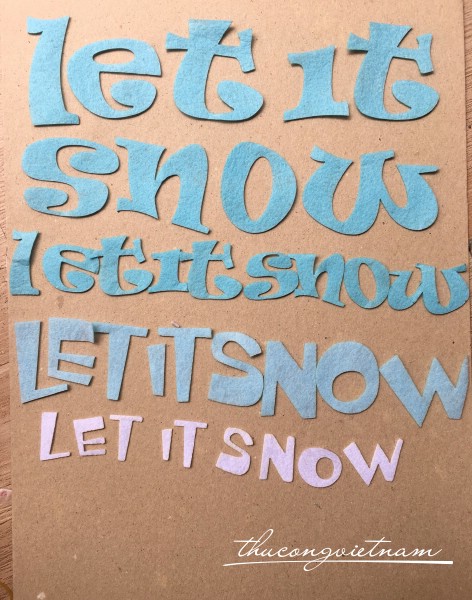 let it
snow
let it snow
LET iT SNOW
LET iT SNOW
thucongvietnam